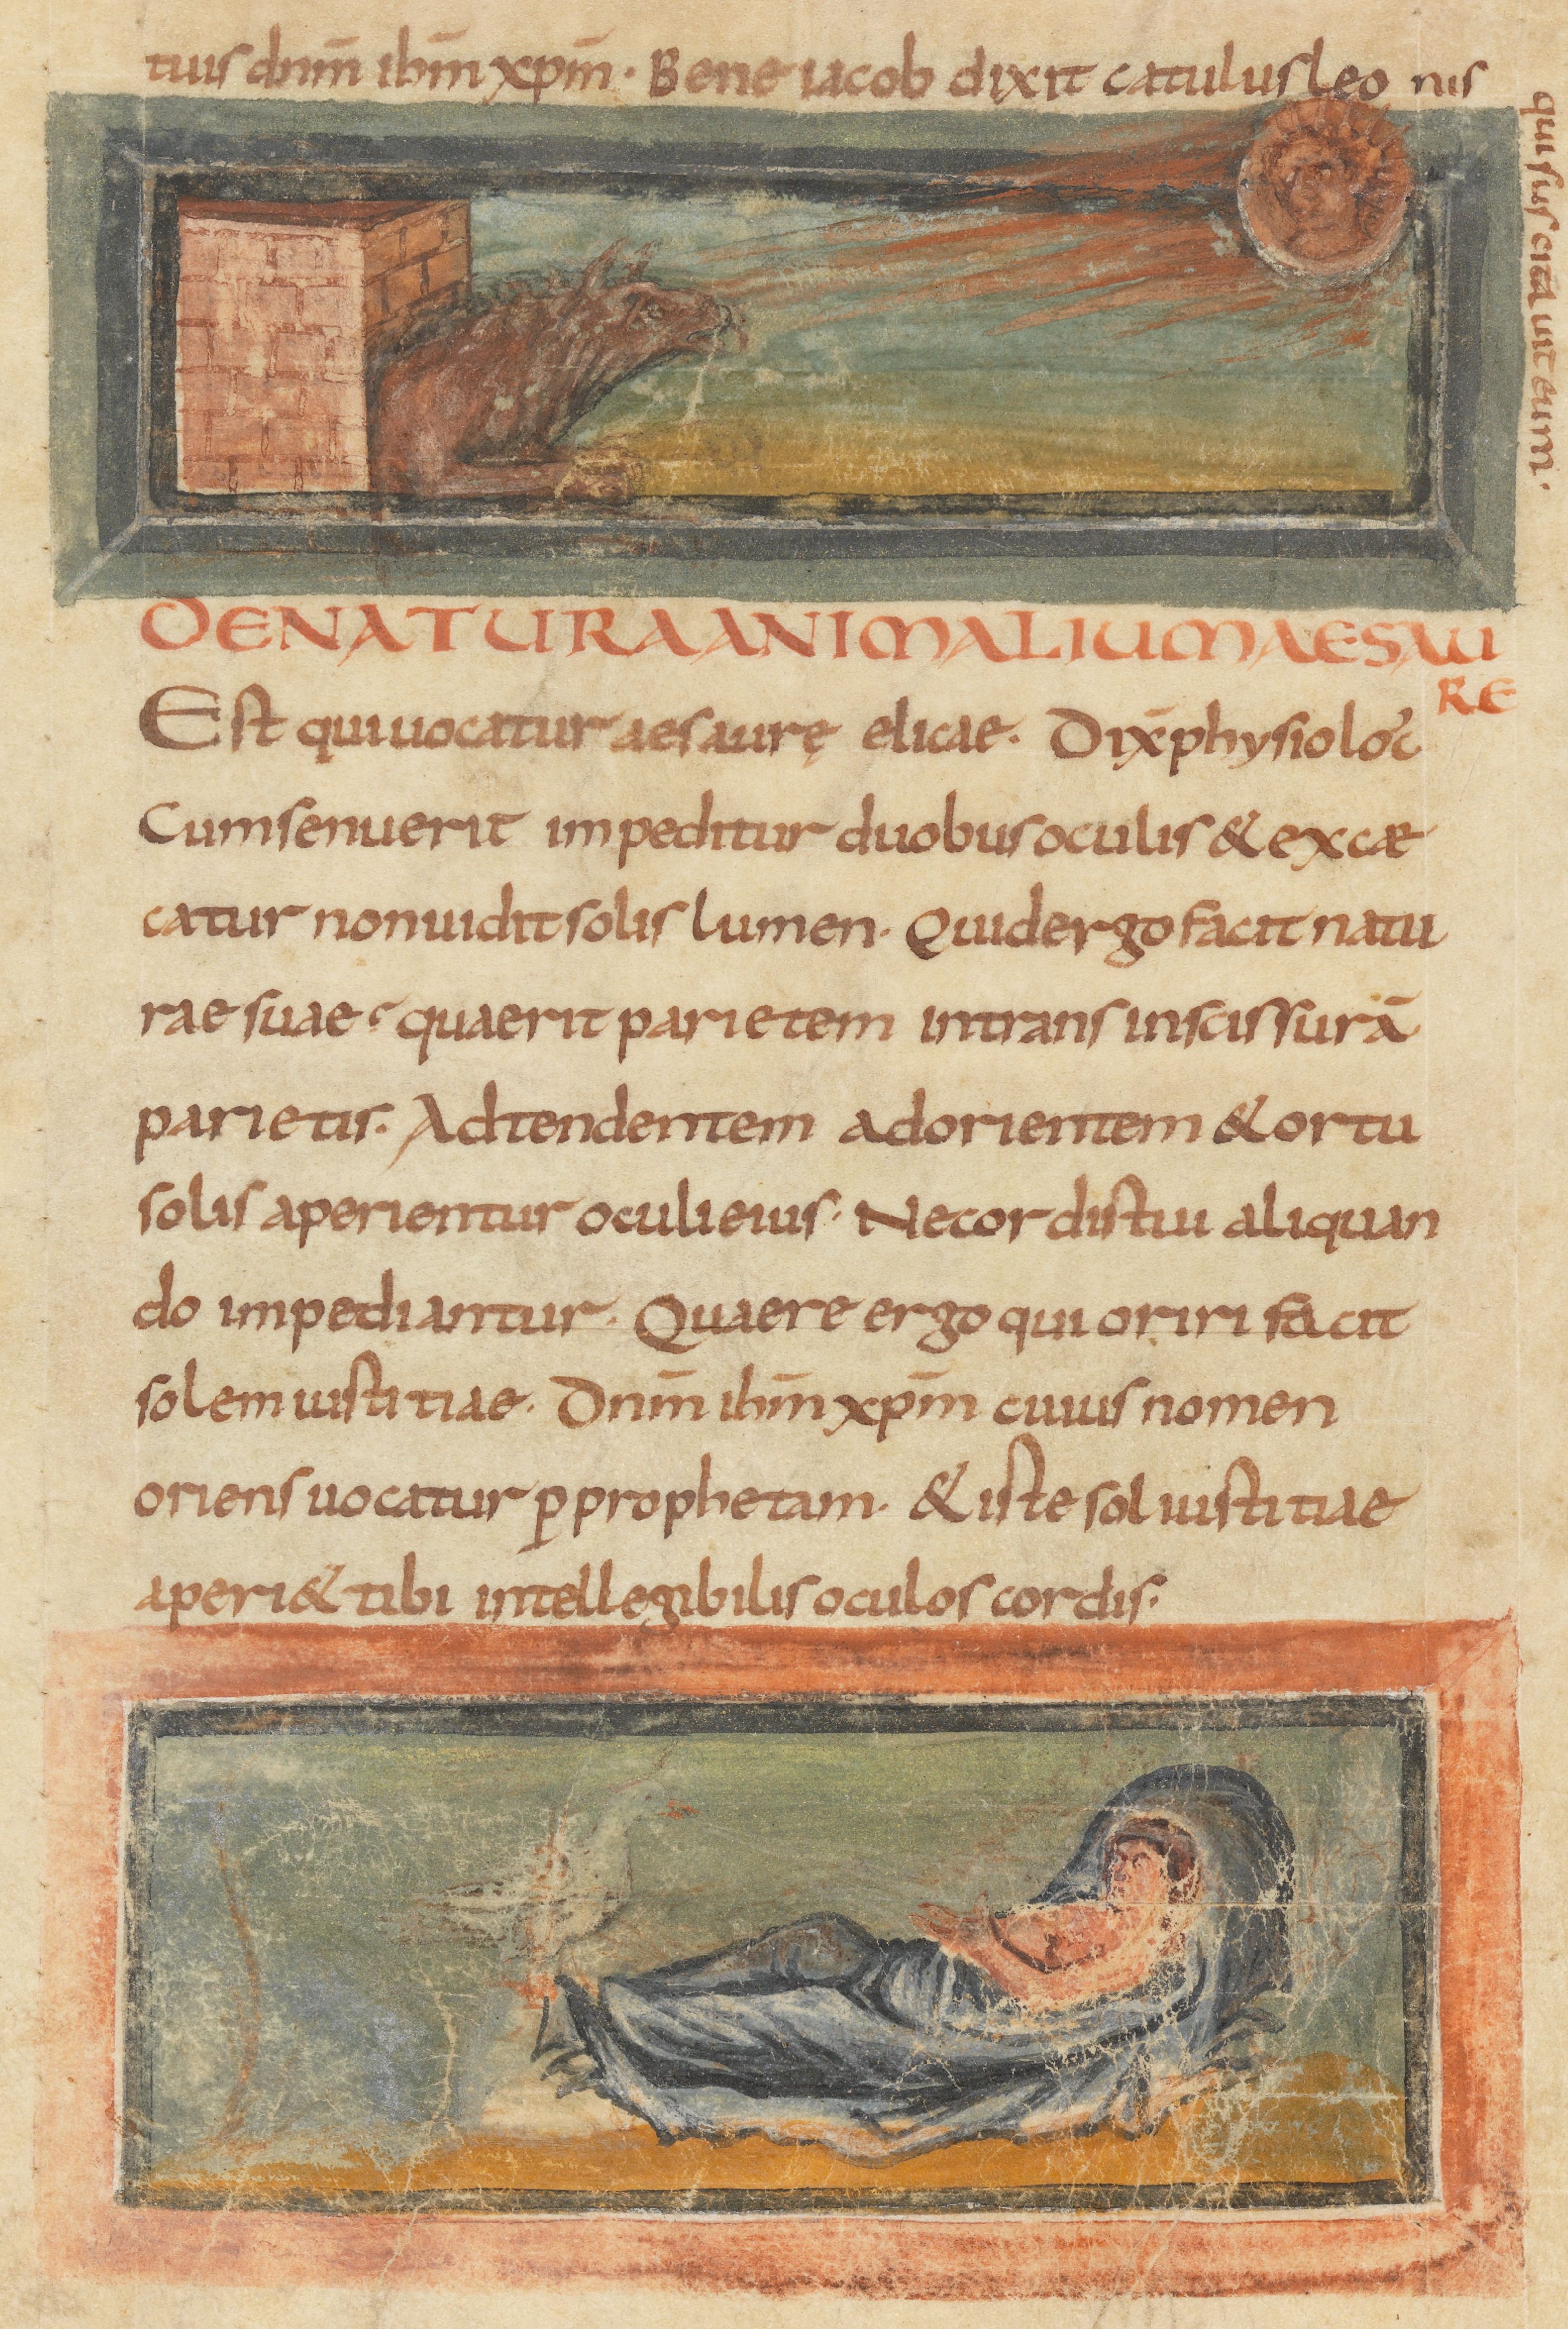 tuis dnm̄ ihm̄ xpm̄· Bene iacob dixit catulus leo nis
qui sus cita uit eum·
DE NATURA ANIMALIUM AESAU
RE
Est qui uocatur aesaurę elicae· Dix̄ physiolo᷒c
Cum senuerit impeditur duobus oculis & excae
catur non uidit solis lumen· Quid ergo facit natu
rae suae? quaerit parietem intrans in scissurā
parietis· Adtendentem ad orientem & ortu
solis aperientur oculi eius· Ne cor dis tui aliquan
do impediantur· Quaere ergo qui oriri facit
solem iustitiae· Dnm̄ ihm̄ xpm̄ cuius nomen
oriens uocatur ꝑ prophetam· & iste sol iustitiae
aperi& tibi intellegibilis oculos cordis·